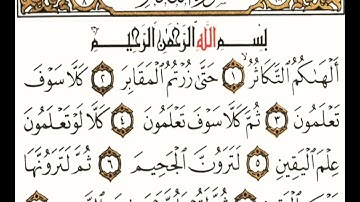 بِسْمِ اللَّهِ الرَّحْمَٰنِ الرَّحِيمِ
أَلْهَىٰكُمُ التَّكَاثُرُ ١ حَتَّىٰ زُرْتُمُ الْمَقَابِرَ ٢ كَلَّا سَوْفَ
تَعْلَمُونَ ٣ ثُمَّ كَلَّا سَوْفَ تَعْلَمُونَ ٤ كَلَّا لَوْ تَعْلَمُونَ
عِلْمَ الْيَقِينِ ٥ لَتَرَوُنَّ الْجَحِيمَ ٦ ثُمَّ لَتَرَوُنَّهَا